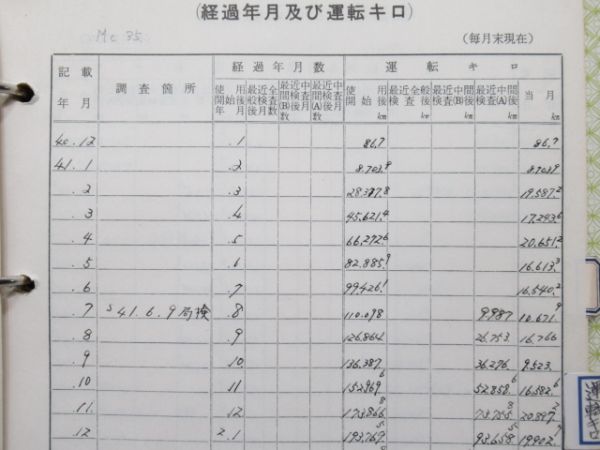 (経過年月及び運転キロ)
Mc 35
(毎月末現在)
記載年月 調査箇所 経過年月数 運転キロ
使用開始後年月 最近全般検査後月数 最近中間(B)検査後月数 最近中間(A)検査後月数 使用開始後km 最近全般検査後km 最近中間検査(B)後km 最近中間検査(A)後km 当月km
40.12 .1 86.7 86.7
41.1 .2 8.703.9 8.703.9
.2 .3 19.587.2
.3 .4 45.621.4 17.293.6
.4 .5 66.272.6 20.651.2
.5 .6 82.885.9 16.613.3
.6 .7 99.426.1 16.540.2
.7 S41.6.9局検 .8 110.098 9987 10.671.9
.8 .9 126.864 26.753 16.766
.9 10 136.387 36.276 9.523
.10 11 152.969.6 52.858.6 16.582.6
11. 12 173.866.8 73.755.8 20.897.2
.12 2.1 193.769.5 93.658.5 19.902.7
運転キロ